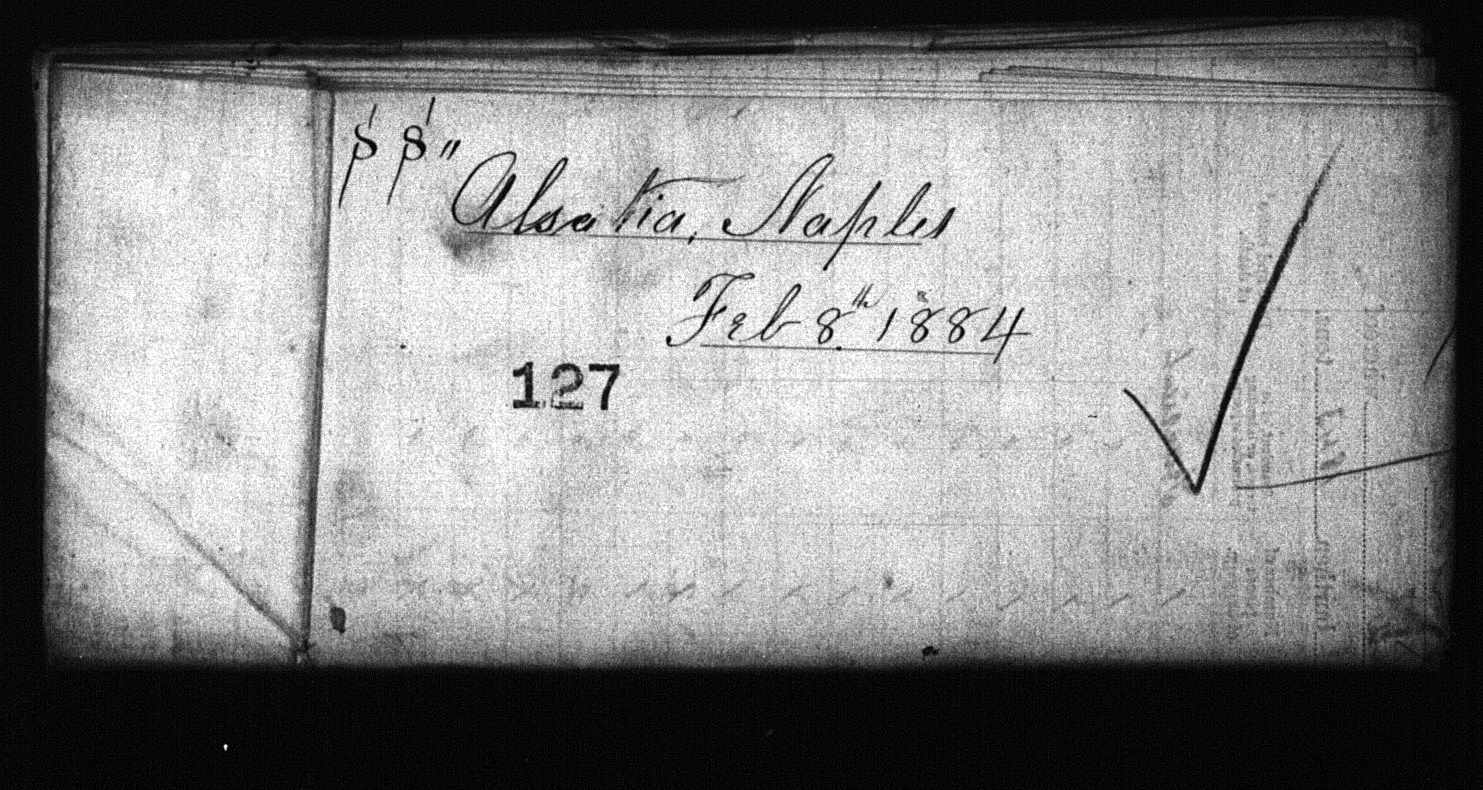 SS" Alsatia, Naples
Feb 8th 1884
127